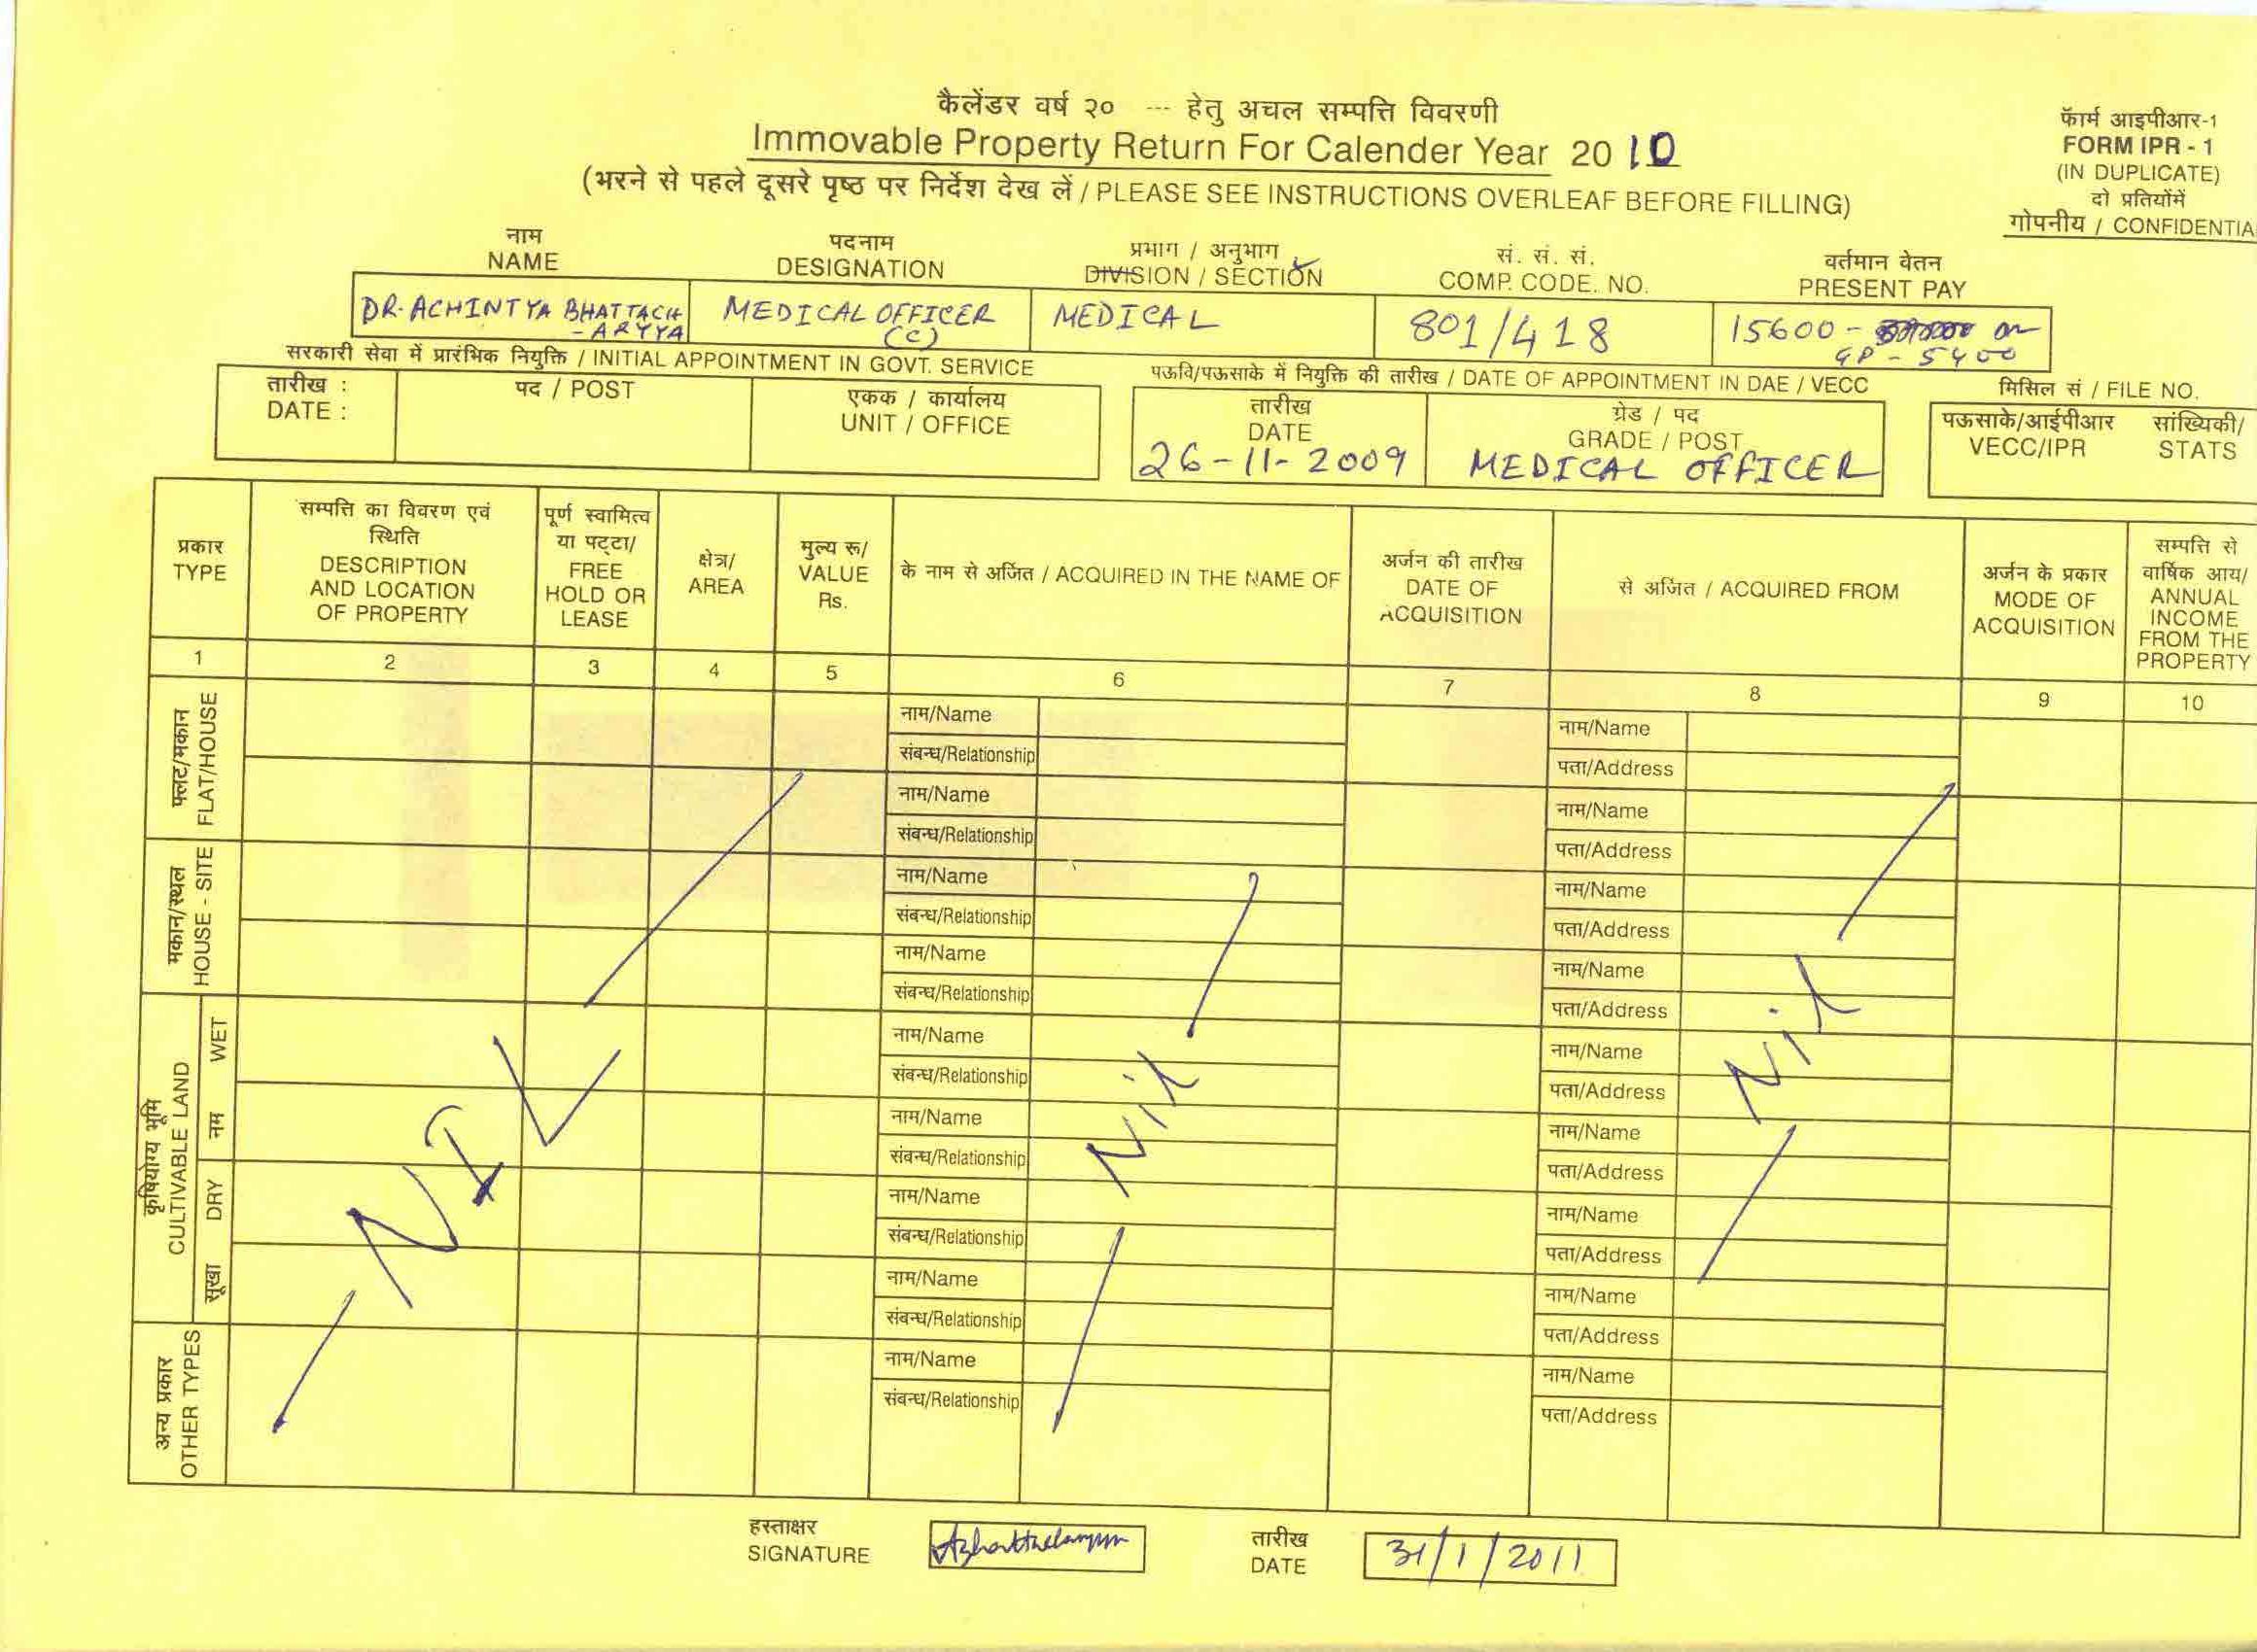 कैलेंडर वर्ष २० --- हेतु अचल सम्पत्ति विवरणी
Immovable Property Return For Calender Year 2010
(भरने से पहले दूसरे पृष्ठ पर निर्देश देख लें / PLEASE SEE INSTRUCTIONS OVERLEAF BEFORE FILLING)
फॅार्म आइपीआर-1
FORM IPR - 1
(IN DUPLICATE)
दो प्रतियोंमें
गोपनीय / CONFIDENTIA
नाम
NAME
पदनाम
DESIGNATION
प्रभाग / अनुभाग
DIVISION / SECTION
सं. सं. सं.
COMP. CODE. NO.
वर्तमान वेतन
PRESENT PAY
DR. ACHINTYA BHATTACH
-ARYYA
MEDICAL OFFICER
(C)
MEDICAL
801/418
15600 -
GP - 5400
सरकारी सेवा में प्रारंभिक नियुक्ति / INITIAL APPOINTMENT IN GOVT. SERVICE
पऊवि/पऊसाके में नियुक्ति की तारीख / DATE OF APPOINTMENT IN DAE / VECC
मिसिल सं / FILE NO.
तारीख :
DATE :
पद / POST
एकक / कार्यालय
UNIT / OFFICE
तारीख
DATE
26-11-2009
ग्रेड / पद
GRADE / POST
MEDICAL OFFICER
पऊसाके/आईपीआर
VECC/IPR
सांख्यिकी/
STATS
प्रकार
TYPE
सम्पत्ति का विवरण एवं
स्थिति
DESCRIPTION
AND LOCATION
OF PROPERTY
पूर्ण स्वामित्व
या पट्टा/
FREE
HOLD OR
LEASE
क्षेत्र/
AREA
मुल्य रू/
VALUE
Rs.
के नाम से अर्जित / ACQUIRED IN THE NAME OF
अर्जन की तारीख
DATE OF
ACQUISITION
से अर्जित / ACQUIRED FROM
अर्जन के प्रकार
MODE OF
ACQUISITION
सम्पत्ति से
वार्षिक आय/
ANNUAL
INCOME
FROM THE
PROPERTY
1 2 3 4 5 6 7 8 9 10
फ्लट/मकान
FLAT/HOUSE
नाम/Name
संबन्ध/Relationship
नाम/Name
संबन्ध/Relationship
नाम/Name
पता/Address
नाम/Name
पता/Address
मकान/स्थल
HOUSE - SITE
नाम/Name
संबन्ध/Relationship
नाम/Name
संबन्ध/Relationship
नाम/Name
पता/Address
नाम/Name
पता/Address
कृषियोग्य भूमि
CULTIVABLE LAND
नम WET
सूखा DRY
नाम/Name
संबन्ध/Relationship
नाम/Name
संबन्ध/Relationship
नाम/Name
संबन्ध/Relationship
नाम/Name
संबन्ध/Relationship
नाम/Name
पता/Address
नाम/Name
पता/Address
नाम/Name
पता/Address
नाम/Name
पता/Address
अन्य प्रकार
OTHER TYPES
नाम/Name
संबन्ध/Relationship
नाम/Name
पता/Address
NIL
Nil
Nil
हस्ताक्षर
SIGNATURE
तारीख
DATE
31/1/2011